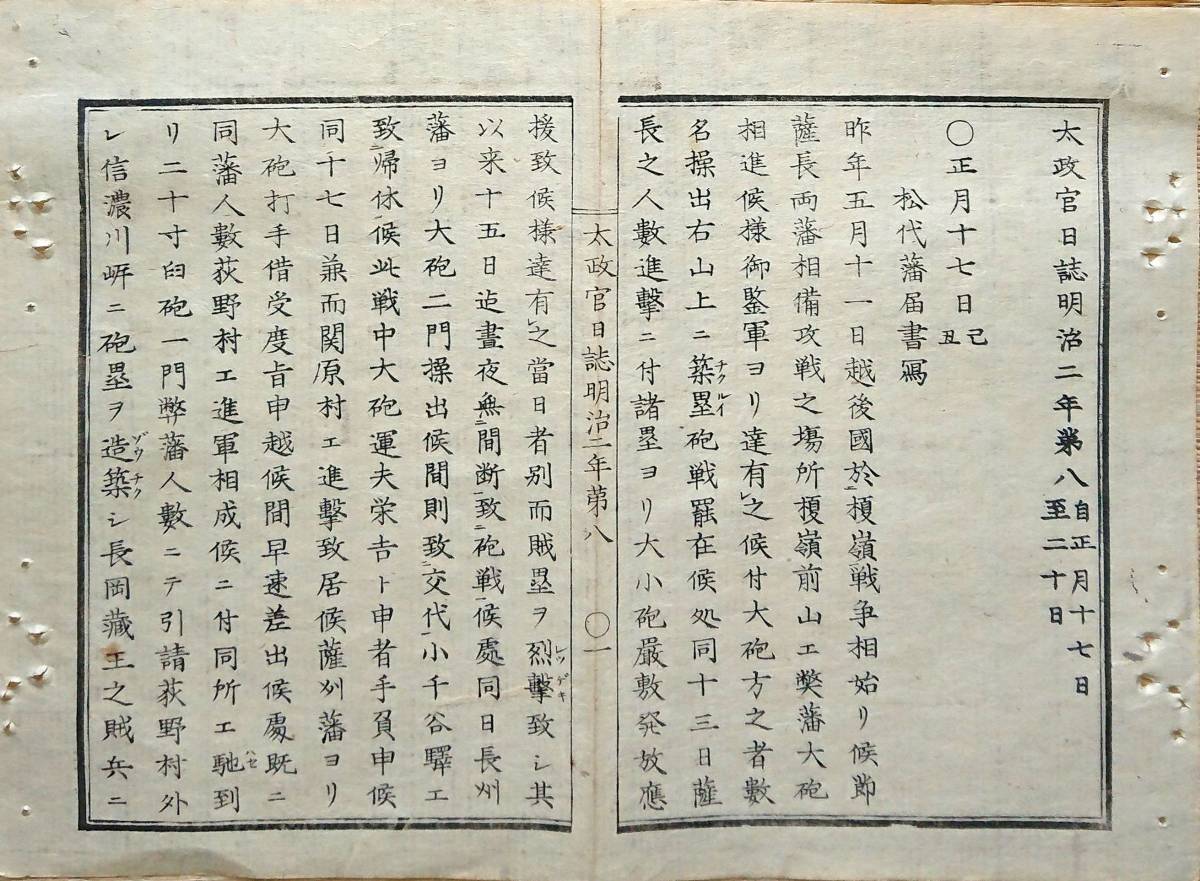 太政官日誌明治二年第八 自正月十七日 至二十日
〇正月十七日 己丑
松代藩届書寫
昨年五月十一日越後國於榎嶺戦争相始リ候節
薩長両藩相備攻戦之塲所榎嶺前山エ獘藩大砲
相進候様御鍳軍ヨリ達有レ之候付大砲方之者數
名操出右山上ニ築塁チクルイ砲戦罷在候処同十三日薩
長之人數進擊ニ付諸塁ヨリ大小砲嚴敷発放應
太政官日誌明治二年苐八 〇一
援致候様達有レ之當日者別而賊塁ヲ烈擊レツゲキ致シ其
以来十五日迠晝夜無二間断一致二砲戦一候處同日長州
藩ヨリ大砲二門操出候間則致二交代一小千谷驛エ
致二帰休一候此戦中大砲運夫栄吉ト申者手負申候
同十七日兼而関原村エ進擊致居候薩州藩ヨリ
大砲打手借受度旨申越候間早速差出候處既ニ
同藩人數荻野村エ進軍相成候ニ付同所エ馳ハセ到
リ二十寸臼砲一門弊藩人數ニテ引請荻野村外
レ信濃川岍ニ砲塁ヲ造築ゾウチクシ長岡藏王之賊兵ニ